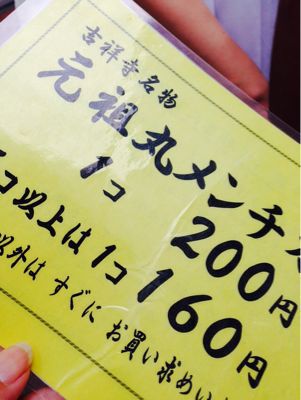 吉祥寺名物
元祖丸メンチカ
1コ 200円
コ以上は1コ160円
以外は すぐに お買い求めい